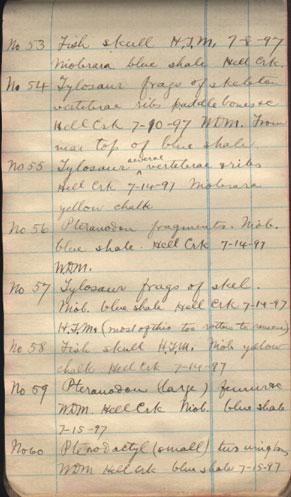 No 53 Fish skull H.T.M. 7-8-97
Niobrara blue shale Hell Crk.
No 54 Tylosaur frags of skeleton
vertebrae ribs paddle bones &c
Hell Crk 7-10-97 WDM. From
near top of blue shale.
No 55 Tylosaur several vertebrae & ribs
Hell Crk 7-14-97 Niobrara
yellow chalk
No 56 Pteranodon fragments. Niob.
blue shale. Hell Crk 7-14-97
WDM.
No 57 Tylosaur frags of skel.
Niob. blue shale Hell Crk 7-14-97
H.T.M. (most of this too rotten to
No 58 Fish skull H.T.M. Niob yellow
chalk Hell Crk 7-14-97
No 59 Pteranodon (large) femur &c
WDM. Hell Crk Niob. blue shale
7-15-97
No 60 Pterodactyl (small) two
WDM Hell Crk blue shale 7-15-97